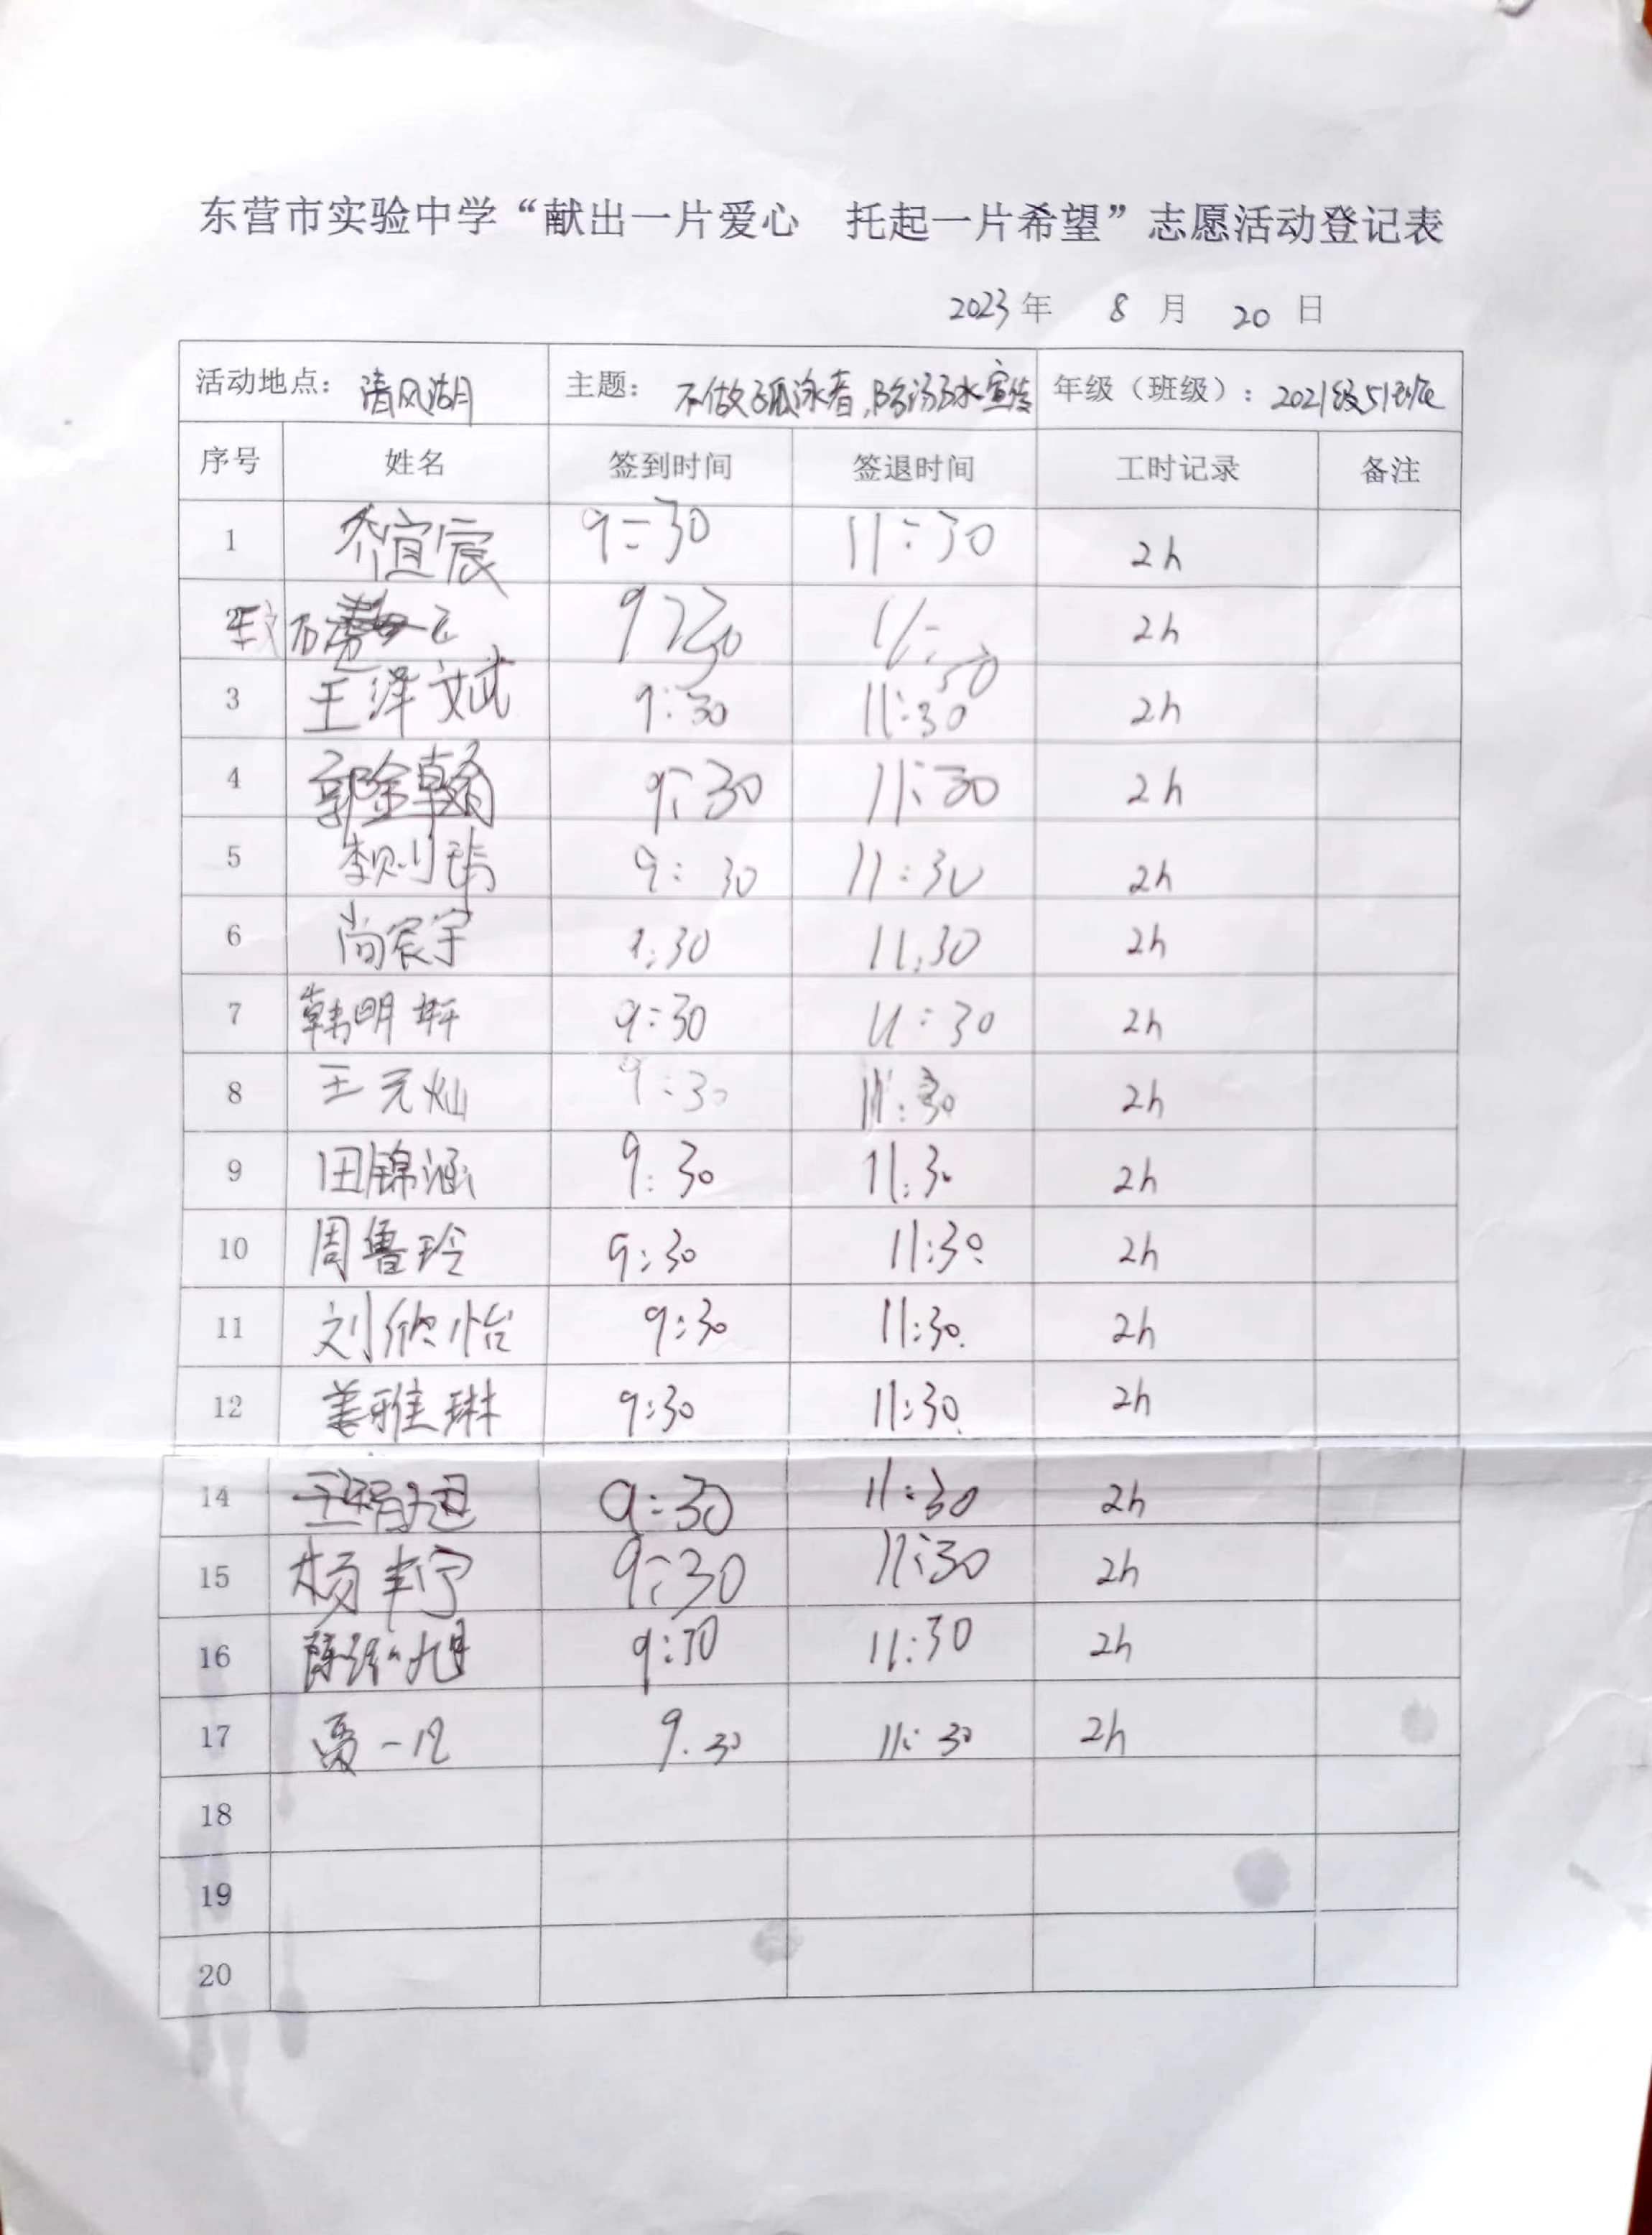 东营市实验中学“献出一片爱心 托起一片希望”志愿活动登记表
2023年 8 月 20 日
活动地点：清风湖 主题：不做孤泳者，防溺水宣传 年级（班级）：2021级51班
序号 姓名 签到时间 签退时间 工时记录 备注
1 乔宜宸 9:30 11:30 2h
2h
3 王泽文斌 9:30 11:30 2h
4 郭金翰 9:30 11:30 2h
5 李则 9:30 11:30 2h
6 尚宸宇 9:30 11:30 2h
7 韩明轩 9:30 11:30 2h
8 王元灿 9:30 11:30 2h
9 田锦涵 9:30 11:30 2h
10 周鲁玲 9:30 11:30 2h
11 刘欣怡 9:30 11:30 2h
12 姜雅琳 9:30 11:30 2h
14 王 9:30 11:30 2h
15 杨丰宁 9:30 11:30 2h
16 旭 9:30 11:30 2h
17 一凡 9.30 11:30 2h
18
19
20